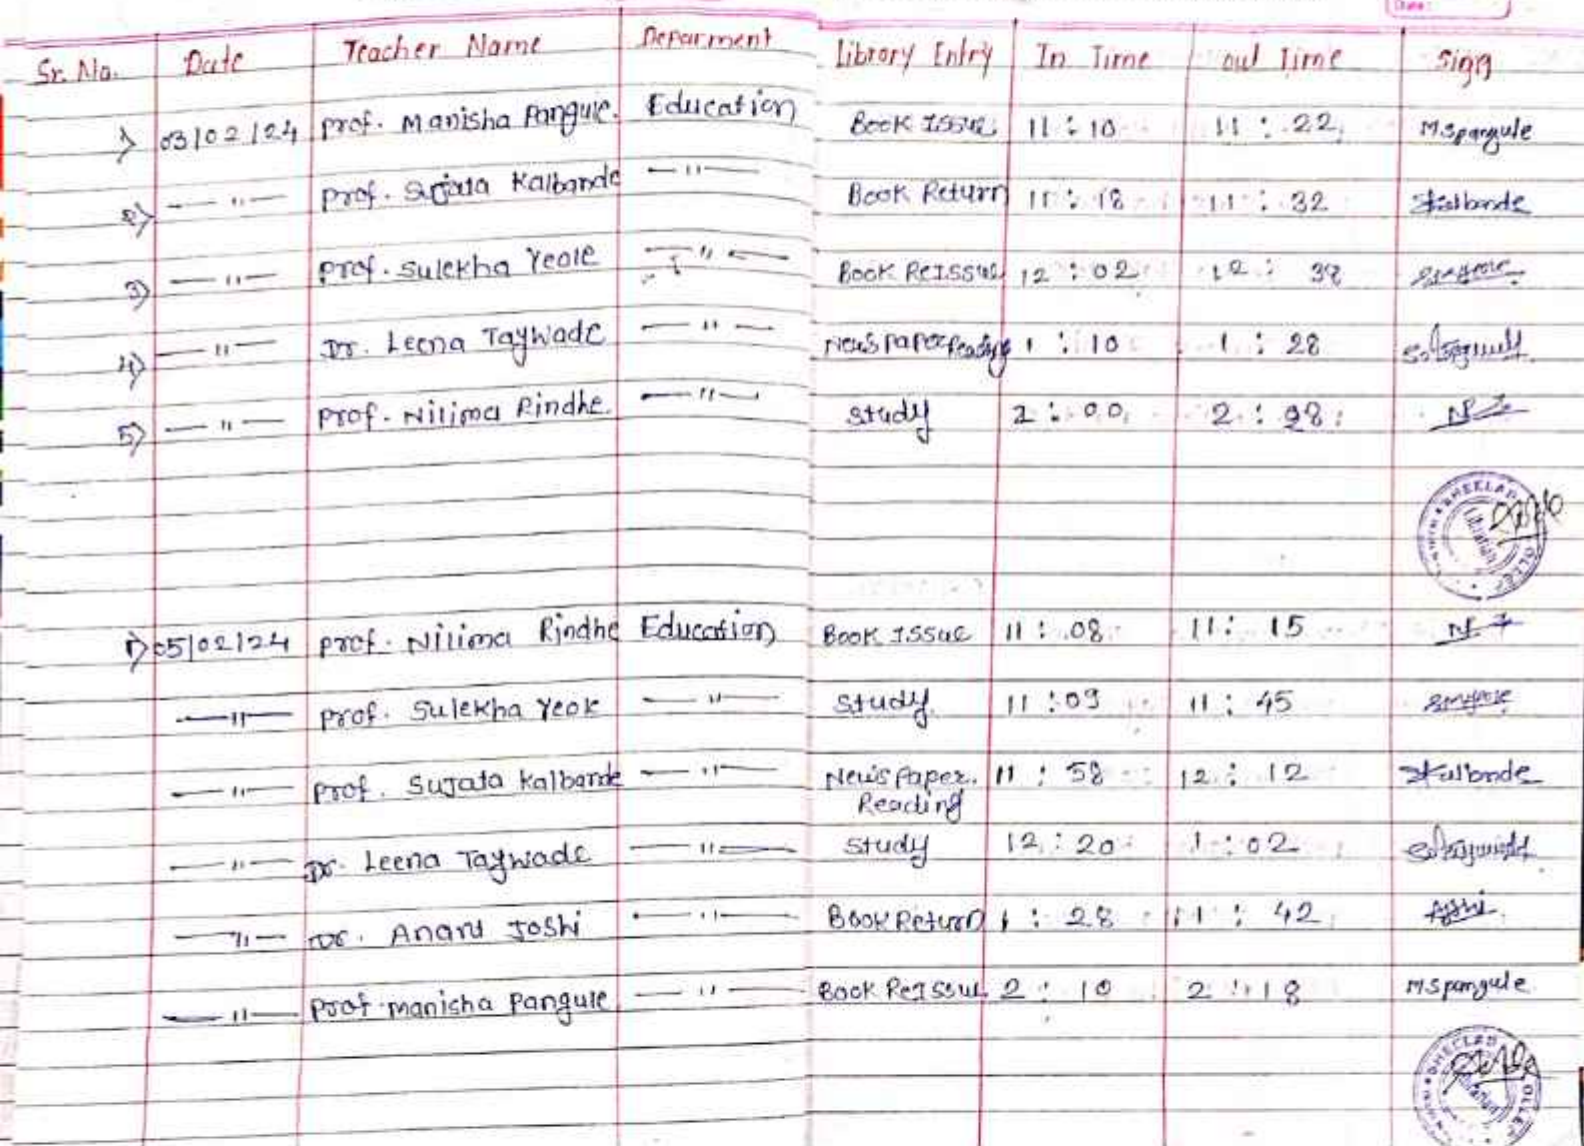 Sr. No. Date Teacher Name Deparment Library Entry In Time out Time Sign
1) 03/02/24 Prof. Manisha Pangule. Education Book Issue 11 : 10 11 : 22 M.S pangule
2) —"— Prof. Sujata Kalbande —"— Book Return 11 : 18 11 : 32 Skalbande
3) —"— Prof. Sulekha Yeole —"— Book ReIssue 12 : 02 12 :
4) —"— Dr. Leena Taywade —"— News paper Reading 1 : 10 1 : 28
5) —"— Prof. Nilima Rindhe. —"— Study 2 : 00
Librarian
1) 05/02/24 Prof. Nilima Rindhe Education Book Issue 11 : 08 11 : 15
—"— Prof. Sulekha Yeole —"— Study 11 : 09 11 : 45
—"— Prof. Sujata Kalbande —"— News Paper. 11 : 58 12 : 12 Skalbande
Reading
—"— Dr. Leena Taywade —"— Study 12 : 20 1 : 02
—"— Dr. Anant Joshi —"— Book Return 1 : 28 1 : 42
—"— Prof manisha Pangule —"— Book ReIssue 2 : 10 2 : 18 M S pangule
Librarian